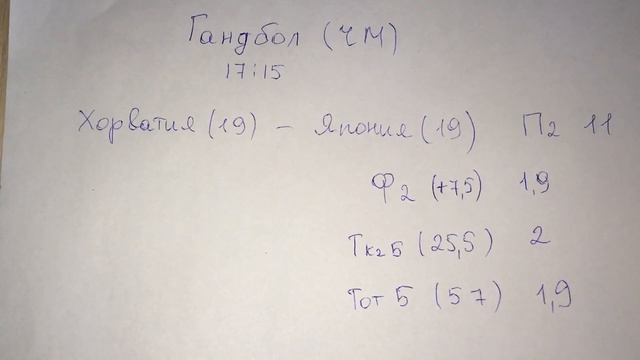 Гандбол (ЧМ)
17:15
Хорватия (19) - Япония (19) П2 11
Ф2 (+7,5) 1,9
Тк2Б (25,5) 2
Тот Б (57) 1,9